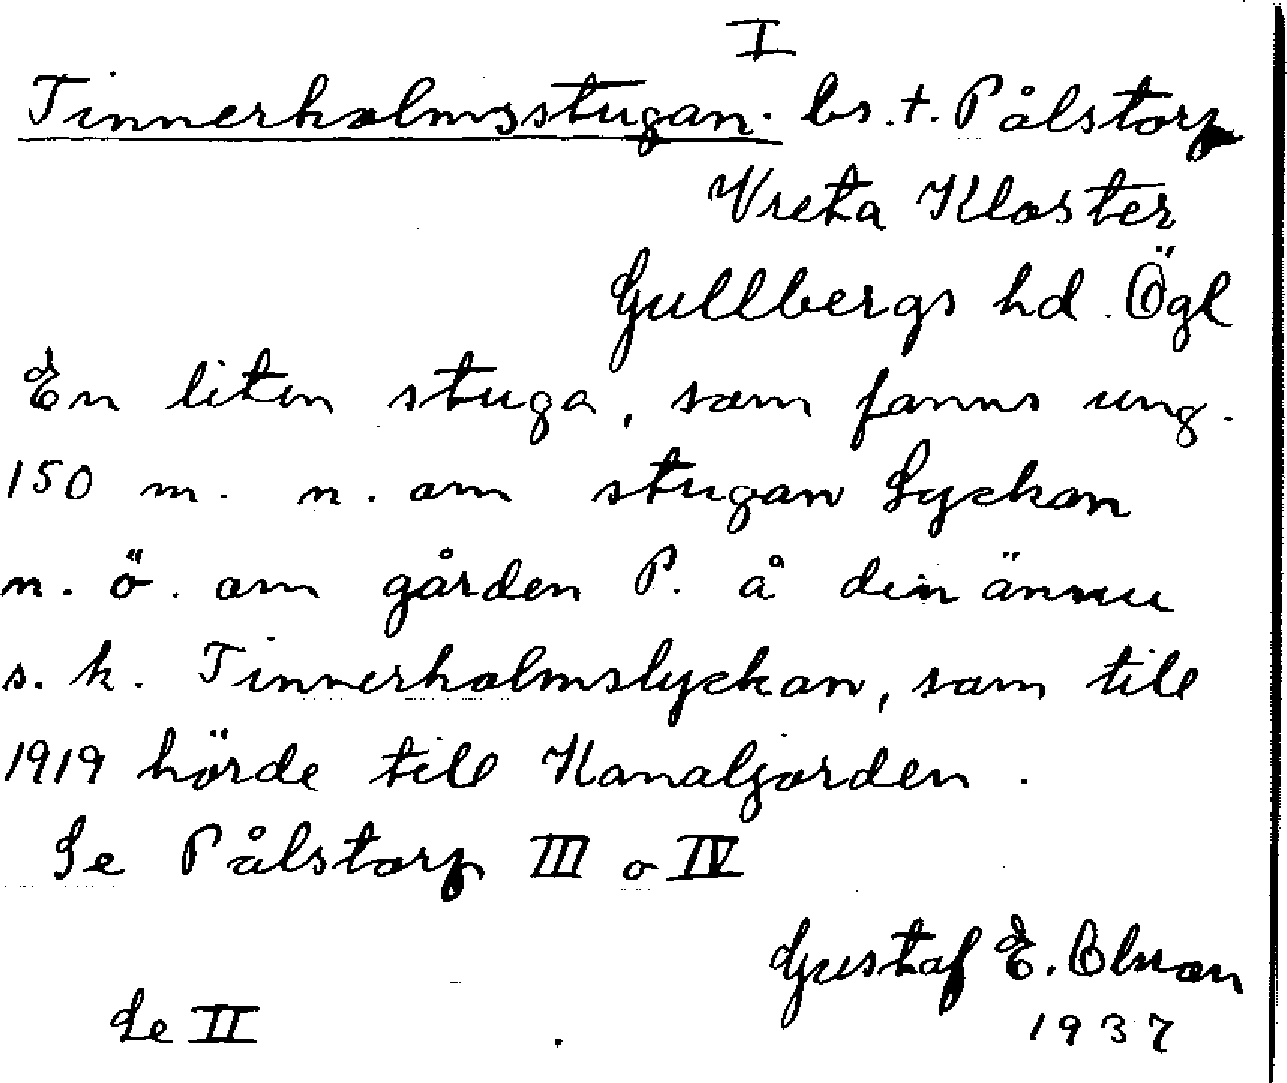 I
Tinnerholmsstugan. bs. t. Pålstorp
Vreta Kloster
Gullbergs hd. Ögl
En liten stuga, som fanns ung.
150 m. n. om stugan Lyckan
n. ö. om gården P. å den ännu
s. k. Tinnerholmslyckan, som till
1919 hörde till Kanaljorden.
Se Pålstorp III o IV
Gustaf E. Olsson
Se II
1937